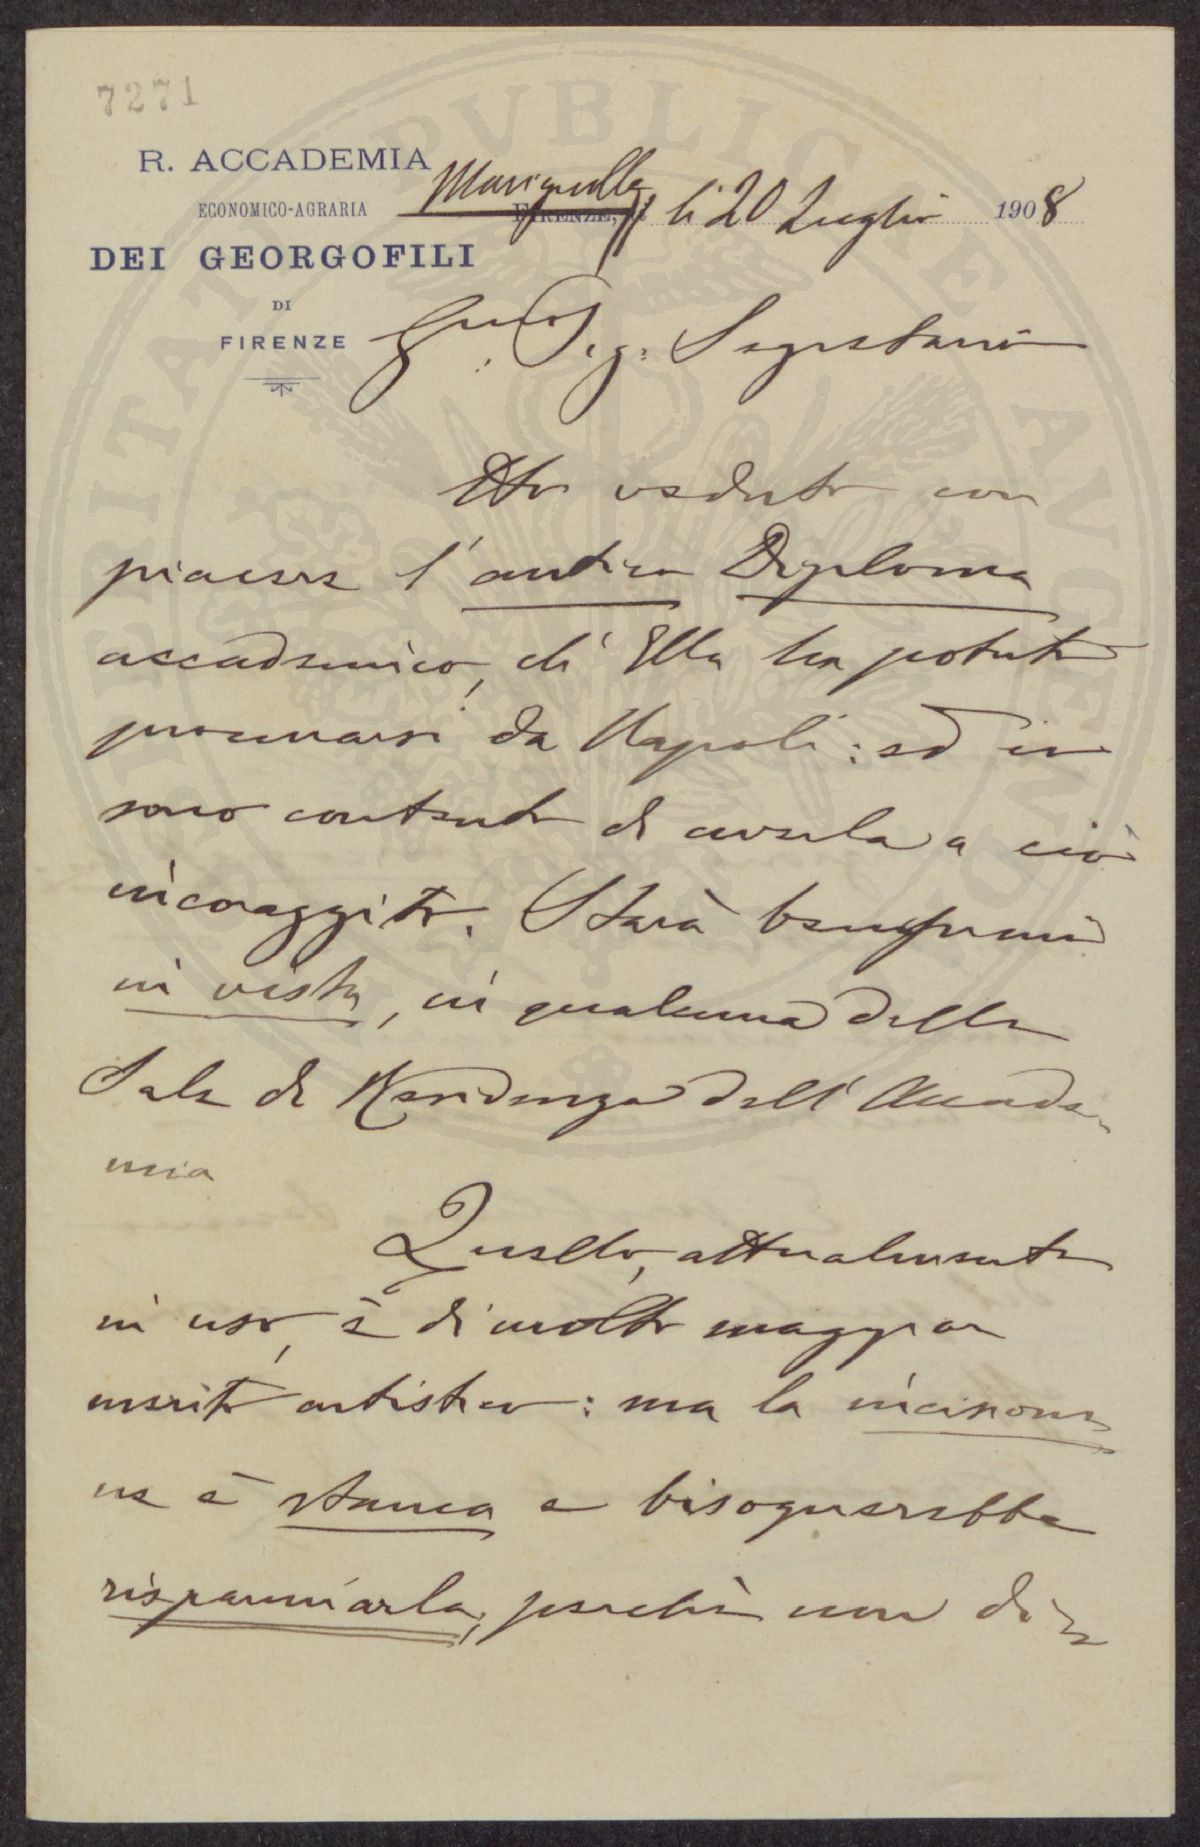 7271
R. ACCADEMIA
ECONOMICO-AGRARIA
DEI GEORGOFILI
DI
FIRENZE
Marignolle li 20 Luglio 1908
FIRENZE,
Sig. Segretario
Ho veduto con
piacere l'antico Diploma
accademico, ch'Ella ha potuto
procurarsi da Napoli: ed io
sono contento di averla a ciò
incoraggito. Starà benissimo
in vista, in qualcuna delle
Sale di Residenza dell'Accade-
mia
Quello, attualmente
in uso, è di molto maggior
merito artistico: ma la incisione
ne è stanca e bisognerebbe
risparmiarla, perchè non di-
PVBLICAE